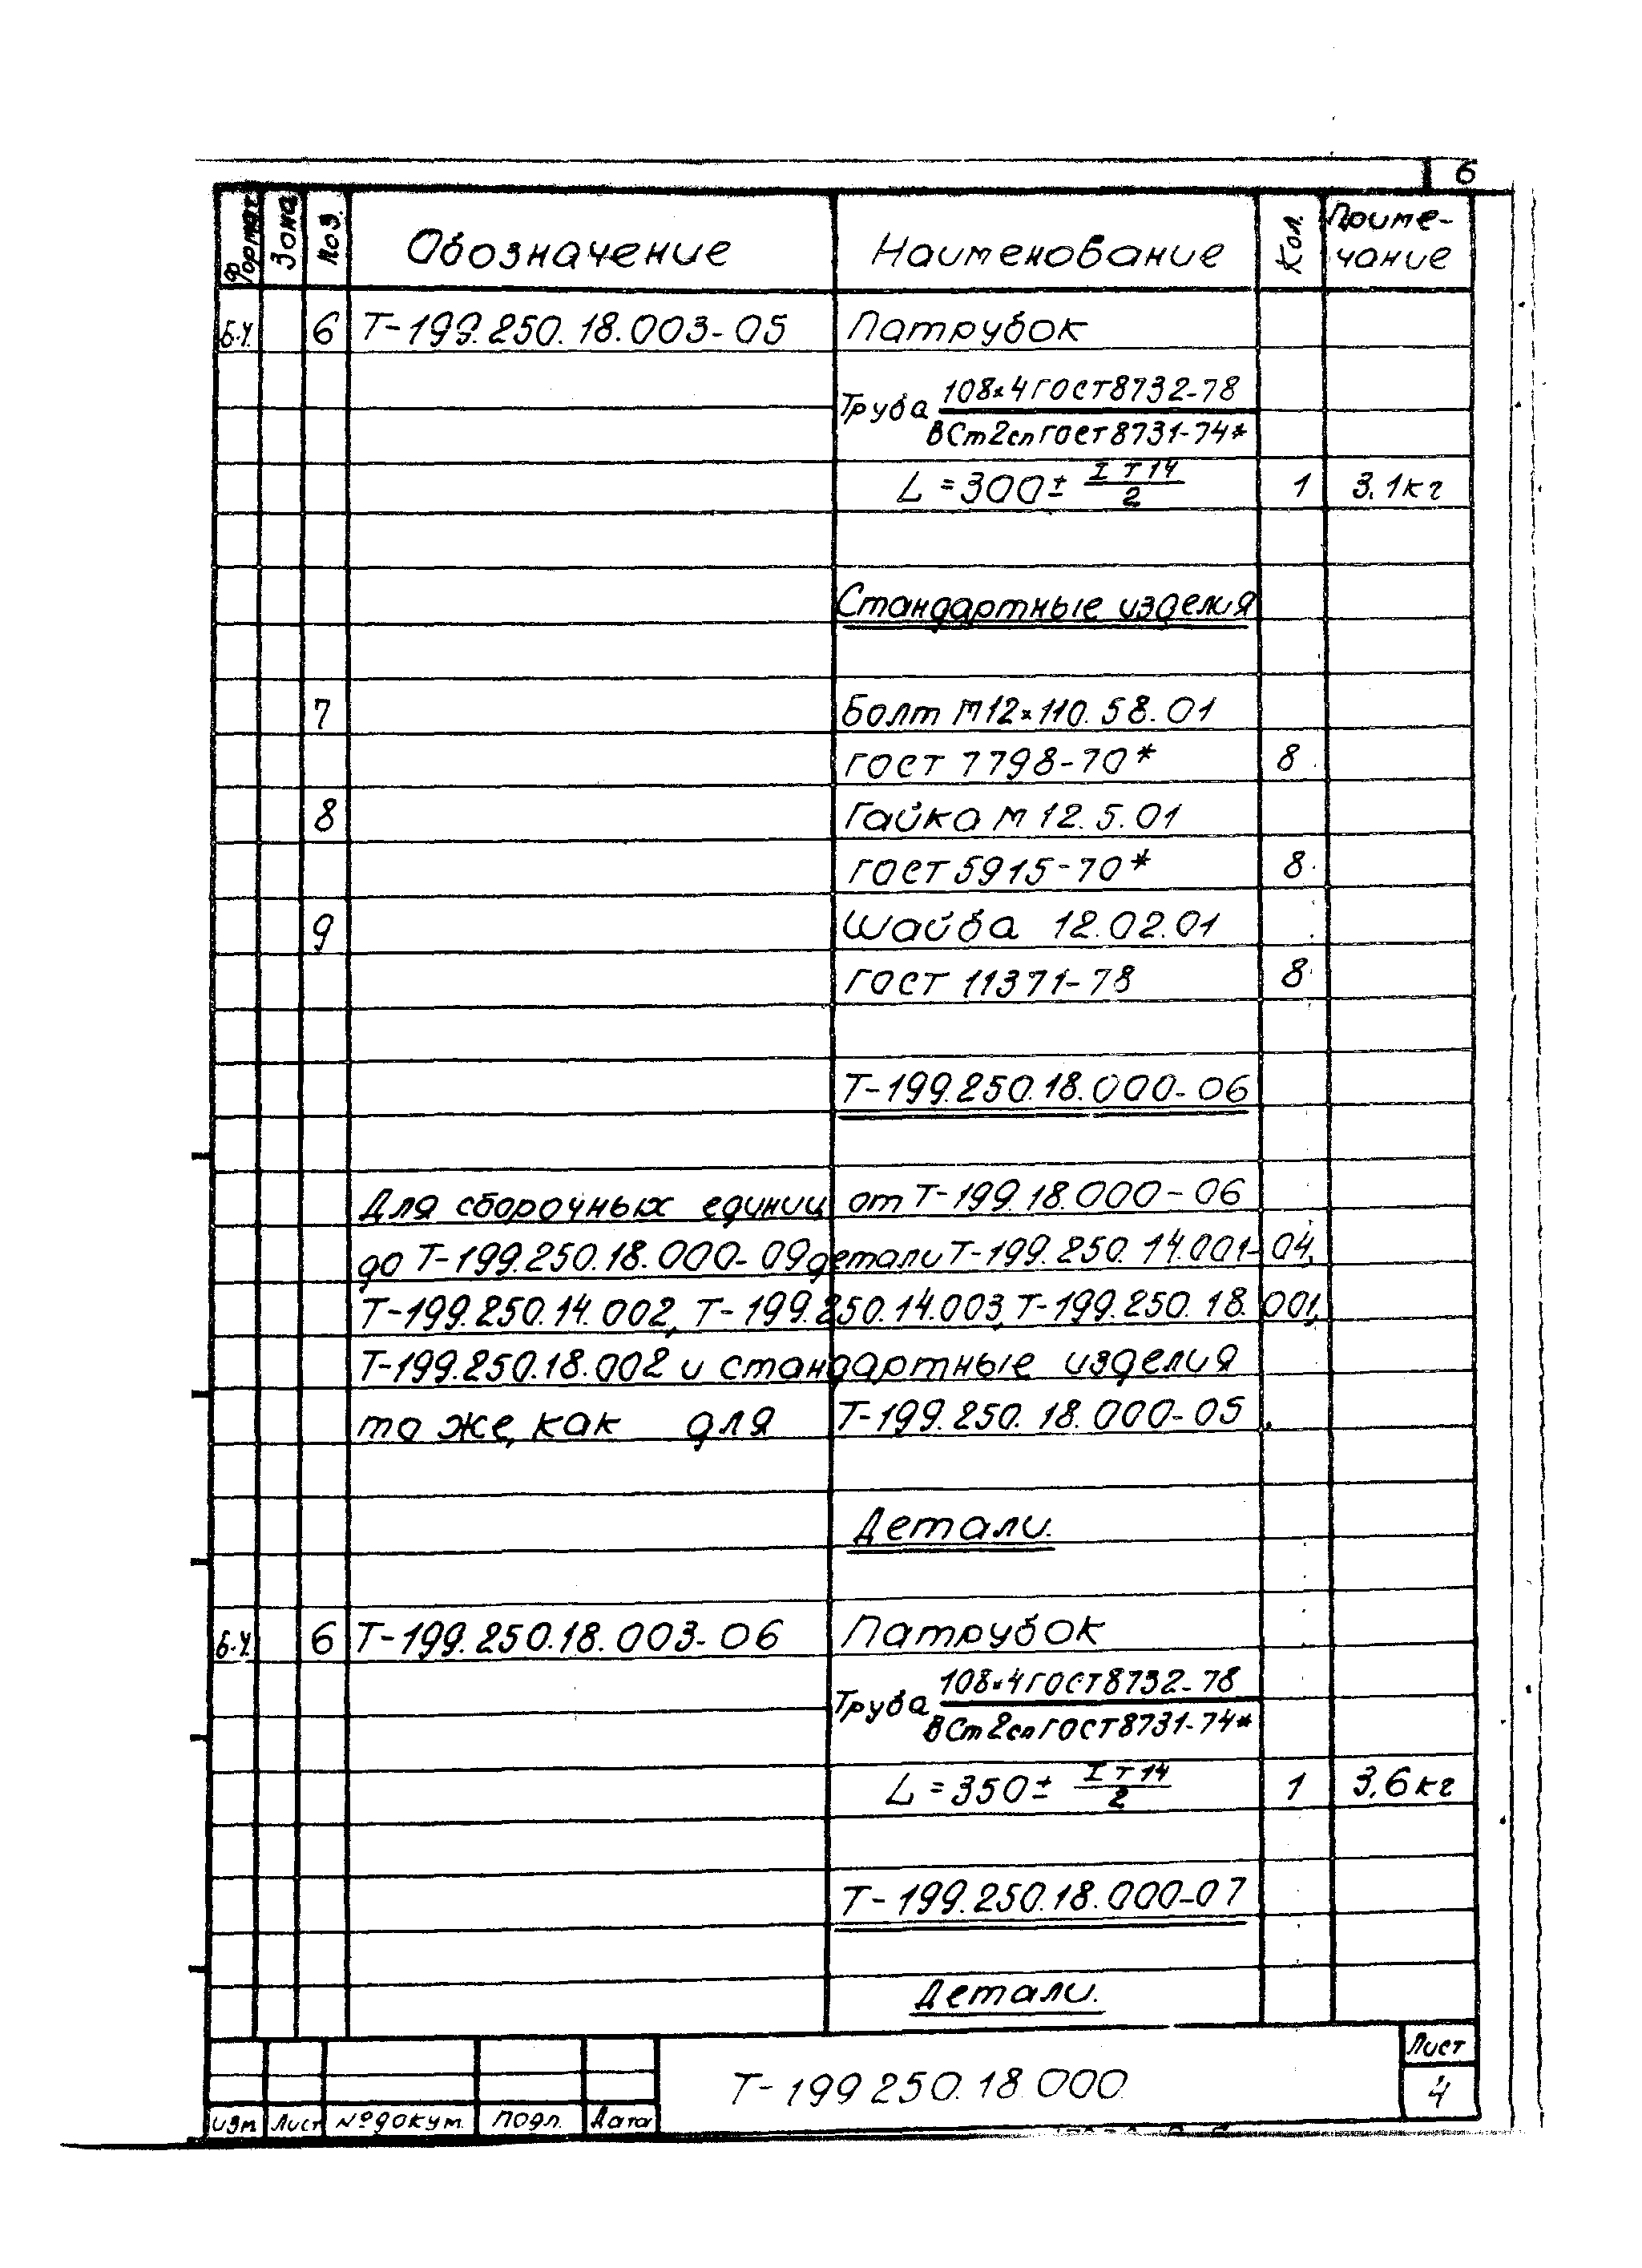 6
Формат Зона Поз. Обозначение Наименование Кол. Приме-
чание
Б.Ч. 6 Т-199.250.18.003-05 Патрубок
108×4 ГОСТ 8732-78
Труба
ВСт2сп ГОСТ 8731-74*
L=300± IT14/2 1 3.1кг
Стандартные изделия
7 Болт М12×110.58.01
ГОСТ 7798-70* 8
8 Гайка М12.5.01
ГОСТ 5915-70* 8
9 Шайба 12.02.01
ГОСТ 11371-78 8
Т-199.250.18.000-06
Для сборочных единиц от Т-199.18.000-06
до Т-199.250.18.000-09 детали Т-199.250.14.001-04,
Т-199.250.14.002, Т-199.250.14.003, Т-199.250.18.001,
Т-199.250.18.002 и стандартные изделия
то же, как для Т-199.250.18.000-05.
Детали.
Б.Ч. 6 Т-199.250.18.003-06 Патрубок
108×4 ГОСТ 8732-78
Труба
ВСт2сп ГОСТ 8731-74*
L=350± IT14/2 1 3.6кг
Т-199.250.18.000-07
Детали.
Т-199 250.18 000
Лист
4
Изм. Лист № докум. Подп. Дата